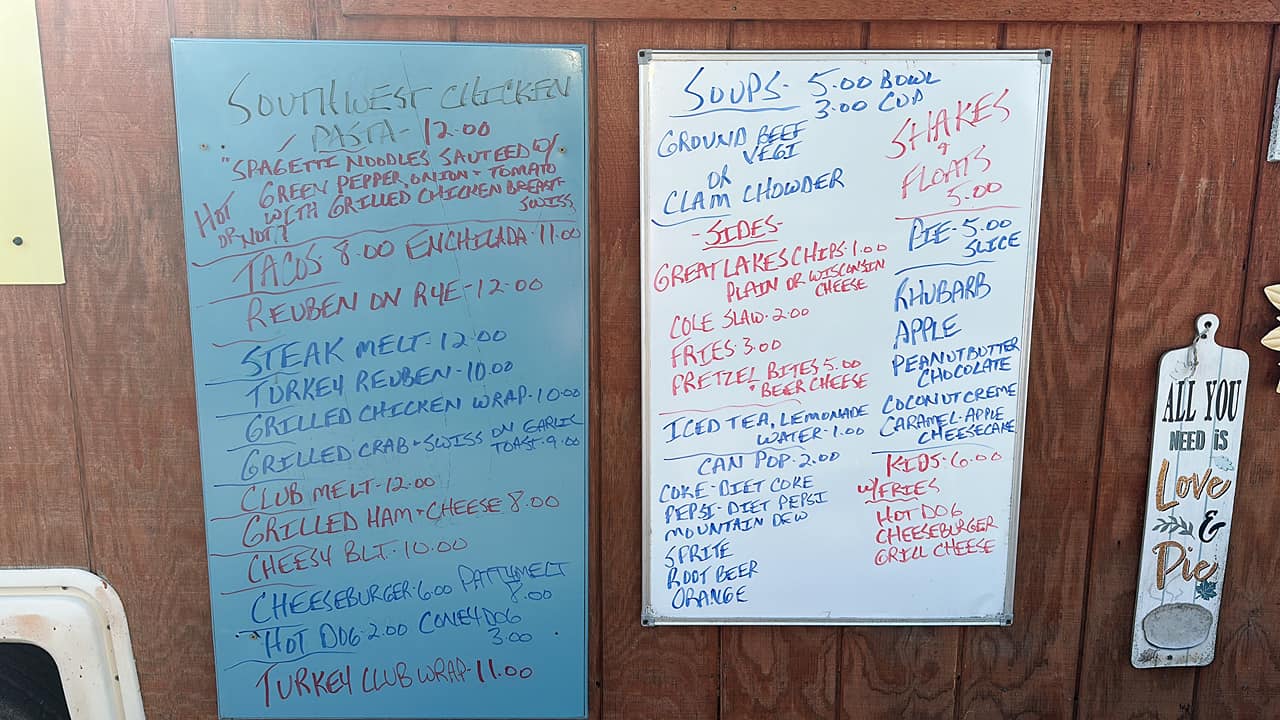 SOUTHWEST CHICKEN
PASTA- 12.00
"SPAGETTI NOODLES SAUTEED W/
GREEN PEPPER, ONION + TOMATO
WITH GRILLED CHICKEN BREAST +
SWISS
HOT
OR NOT?
TACOS 8.00 ENCHILADA. 11.00
REUBEN ON RYE-12.00
STEAK MELT-12.00
TURKEY REUBEN-10.00
GRILLED CHICKEN WRAP-10.00
GRILLED CRAB + SWISS ON GARLIC
TOAST-9.00
CLUB MELT-12.00
GRILLED HAM + CHEESE 8.00
CHEESY BLT.10.00
CHEESEBURGER.6.00 PATTYMELT
8.00
HOT DOG-2.00 CONEY DOG
3.00
TURKEY CLUB WRAP-11.00
SOUPS- 5.00 BOWL
3.00 CUP
GROUND BEEF
VEGI
OR
CLAM CHOWDER
-SIDES-
GREAT LAKES CHIPS.1.00
PLAIN OR WISCONSIN
CHEESE
COLE SLAW.2.00
FRIES.3.00
PRETZEL BITES 5.00
"BEER CHEESE
ICED TEA, LEMONADE
WATER-1.00
CAN POP.2.00
COKE-DIET COKE
PEPSI-DIET PEPSI
MOUNTAIN DEW
SPRITE
ROOT BEER
ORANGE
SHAKES
+
FLOATS
5.00
PIE-5.00
SLICE
RHUBARB
APPLE
PEANUTBUTTER
CHOCOLATE
COCONUT CREME
CARAMEL-APPLE
CHEESECAKE
KIDS.6.00
W/FRIES
HOT DOG
CHEESEBURGER
GRILL CHEESE
ALL YOU
NEED IS
Love
&
Pie